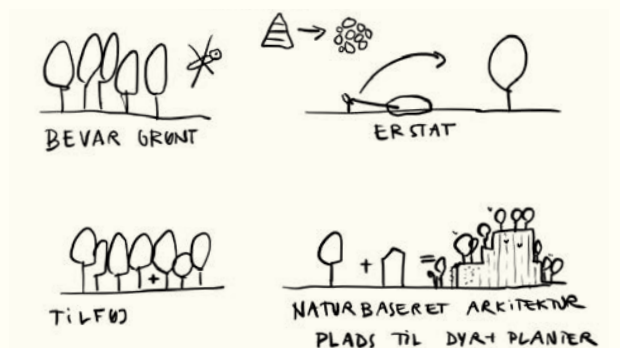 BEVAR GRØNT
ERSTAT
TILFØJ
NATURBASERET ARKITEKTUR
PLADS TIL DYR + PLANTER